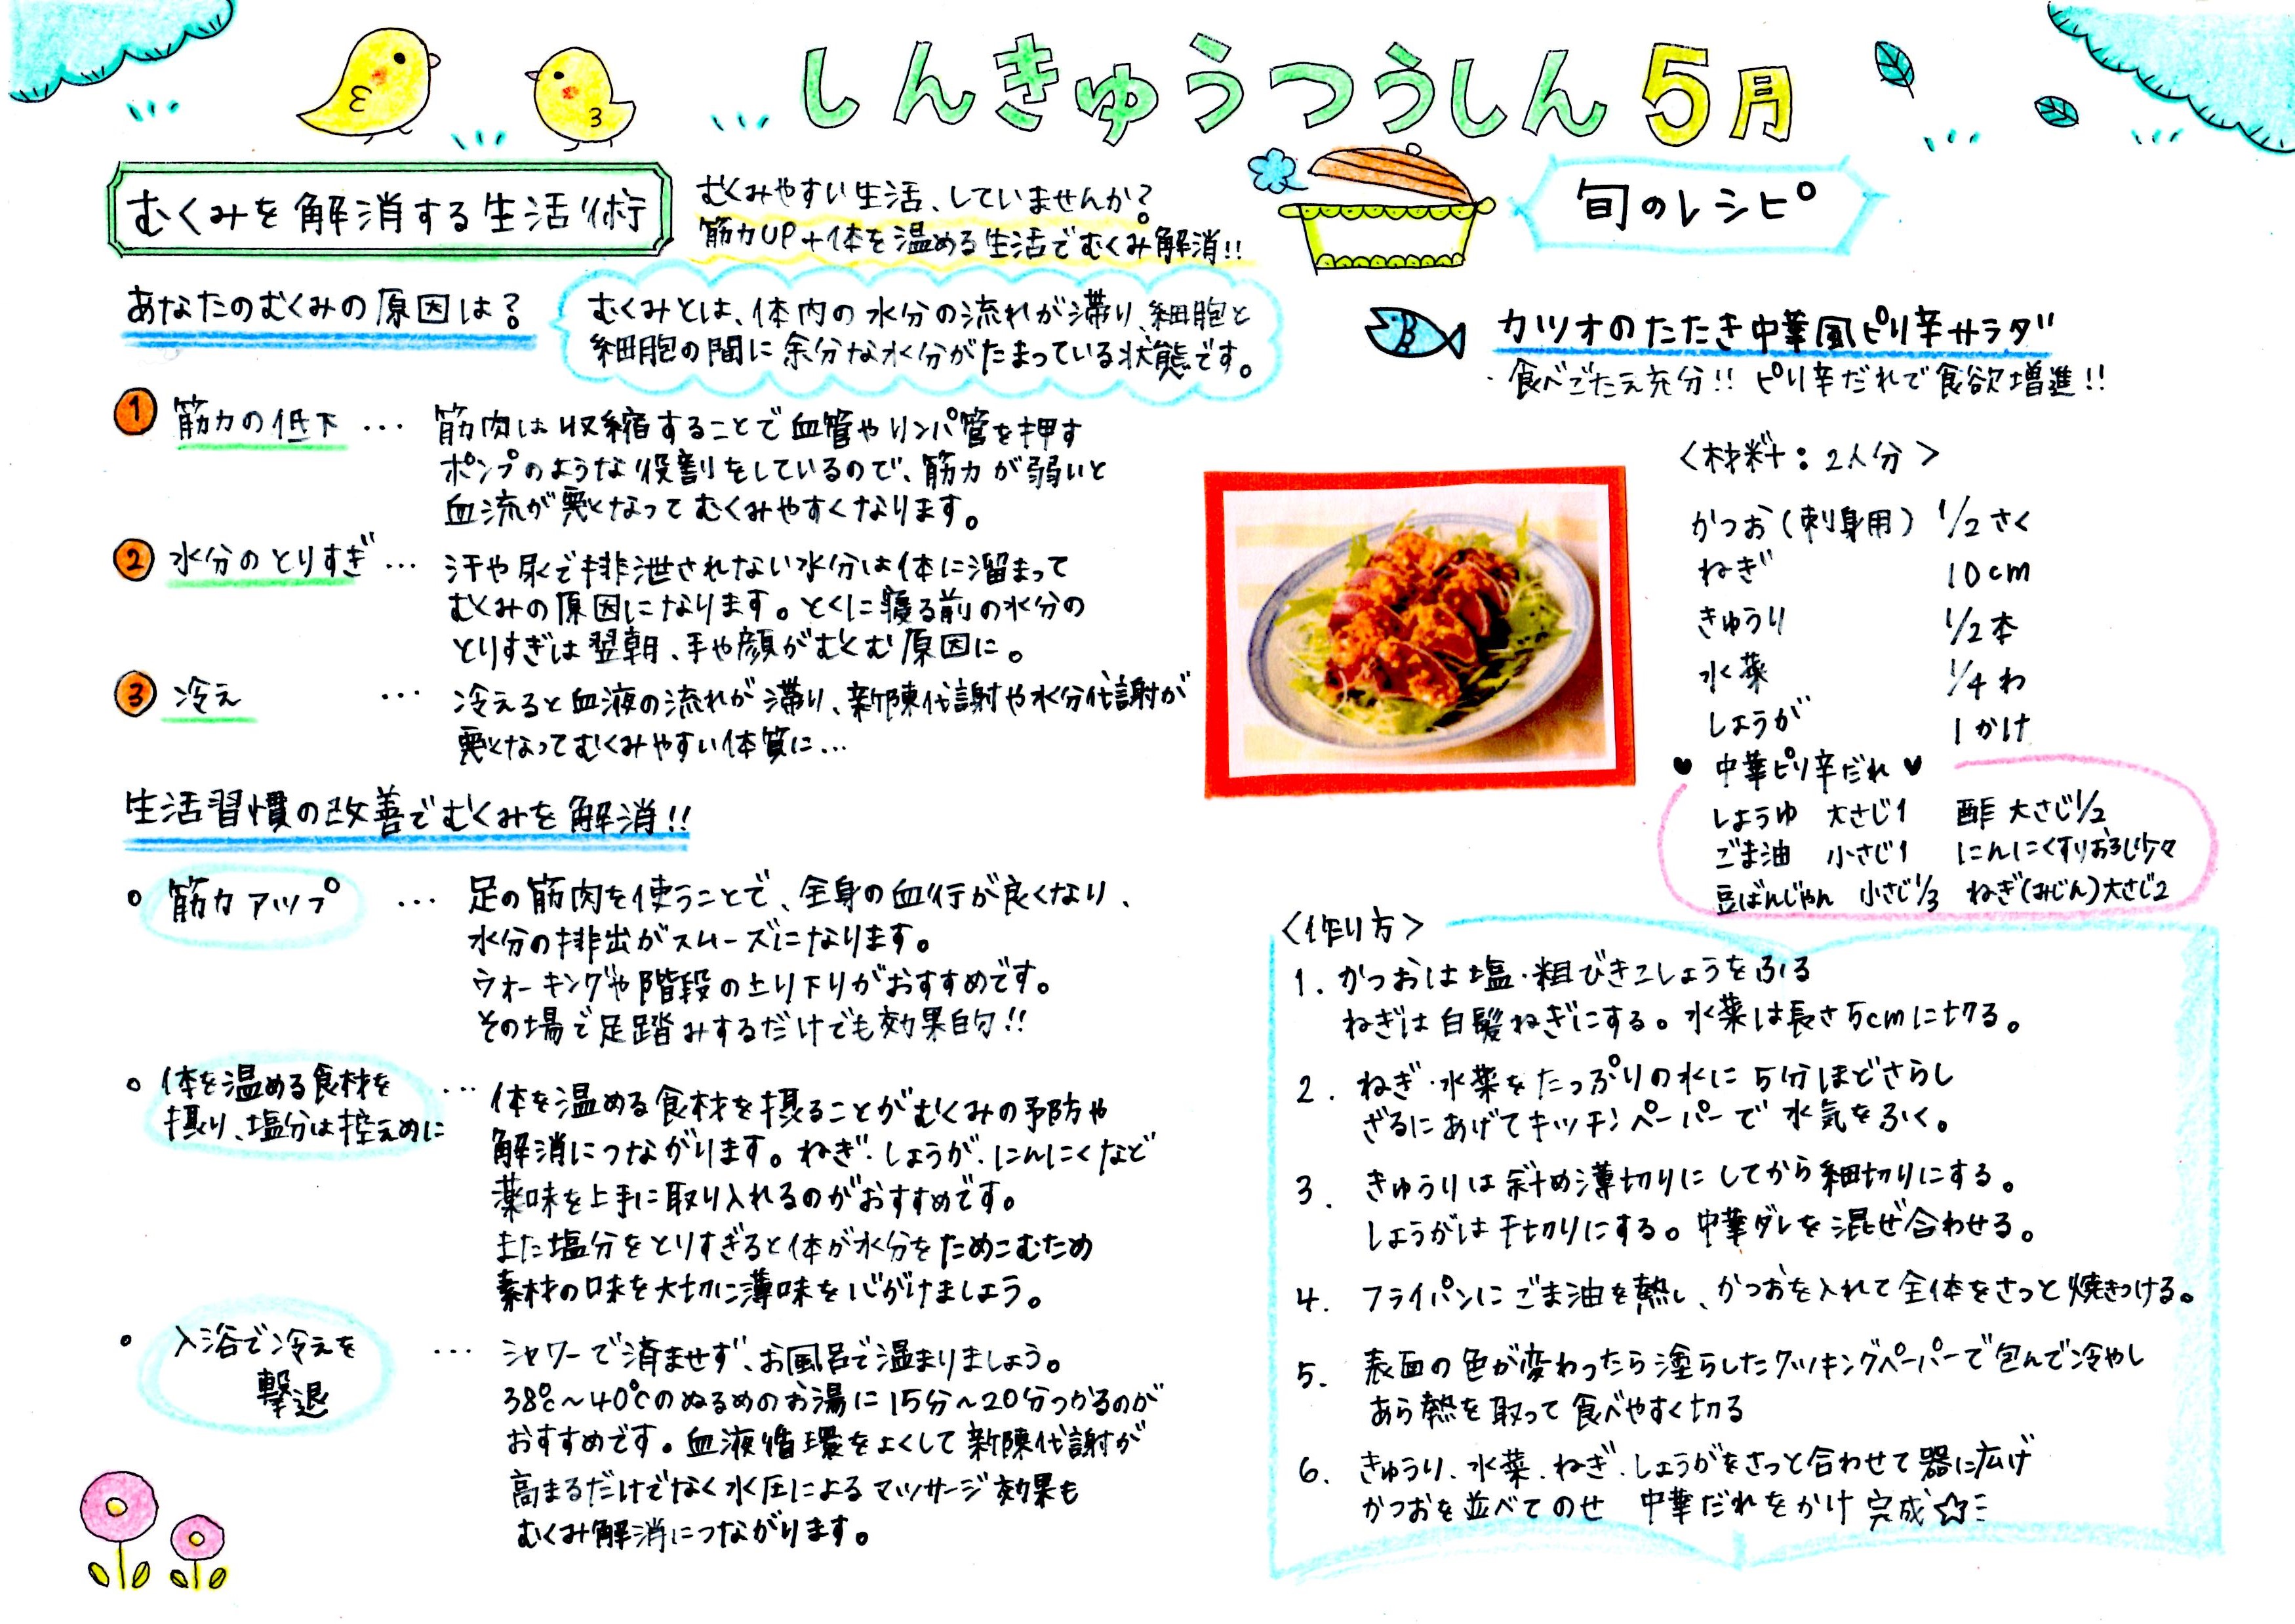 しんきゅうつうしん 5月
むくみを解消する生活術
むくみやすい生活、していませんか？
筋力UP+体を温める生活でむくみ解消!!
あなたのむくみの原因は？
むくみとは、体内の水分の流れが滞り、細胞と
細胞の間に余分な水分がたまっている状態です。
① 筋力の低下 … 筋肉は収縮することで血管やリンパ管を押す
ポンプのような役割をしているので、筋力が弱いと
血流が悪くなってむくみやすくなります。
② 水分のとりすぎ … 汗や尿で排泄されない水分は体に溜まって
むくみの原因になります。とくに寝る前の水分の
とりすぎは翌朝、手や顔がむくむ原因に。
③ 冷え … 冷えると血液の流れが滞り、新陳代謝や水分代謝が
悪くなってむくみやすい体質に…
生活習慣の改善でむくみを解消!!
○ 筋力アップ … 足の筋肉を使うことで、全身の血行が良くなり、
水分の排出がスムーズになります。
ウォーキングや階段の上り下りがおすすめです。
その場で足踏みするだけでも効果的!!
○ 体を温める食材を
摂り、塩分は控えめに
… 体を温める食材を摂ることがむくみの予防や
解消につながります。ねぎ・しょうが・にんにくなど
薬味を上手に取り入れるのがおすすめです。
また塩分をとりすぎると体が水分をためこむため
素材の味を大切に薄味を心がけましょう。
○ 入浴で冷えを
撃退
… シャワーで済ませず、お風呂で温まりましょう。
38℃〜40℃のぬるめのお湯に15分〜20分つかるのが
おすすめです。血液循環をよくして新陳代謝が
高まるだけでなく水圧によるマッサージ効果も
むくみ解消につながります。
旬のレシピ
カツオのたたき中華風ピリ辛サラダ
・食べごたえ充分!! ピリ辛だれで食欲増進!!
<材料：2人分>
かつお(刺身用) 1/2さく
ねぎ 10cm
きゅうり 1/2本
水菜 1/4わ
しょうが 1かけ
♥ 中華ピリ辛だれ ♥
しょうゆ 大さじ1 酢 大さじ1/2
ごま油 小さじ1 にんにくすりおろし少々
豆ばんじゃん 小さじ1/3 ねぎ(みじん)大さじ2
<作り方>
1. かつおは塩・粗びきこしょうをふる
ねぎは白髪ねぎにする。水菜は長さ5cmに切る。
2. ねぎ・水菜をたっぷりの水に5分ほどさらし
ざるにあげてキッチンペーパーで水気をふく。
3. きゅうりは斜め薄切りにしてから細切りにする。
しょうがは千切りにする。中華ダレを混ぜ合わせる。
4. フライパンにごま油を熱し、かつおを入れて全体をさっと焼きつける。
5. 表面の色が変わったら濡らしたクッキングペーパーで包んで冷やし
あら熱を取って食べやすく切る
6. きゅうり、水菜、ねぎ、しょうがをさっと合わせて器に広げ
かつおを並べてのせ 中華だれをかけ完成☆